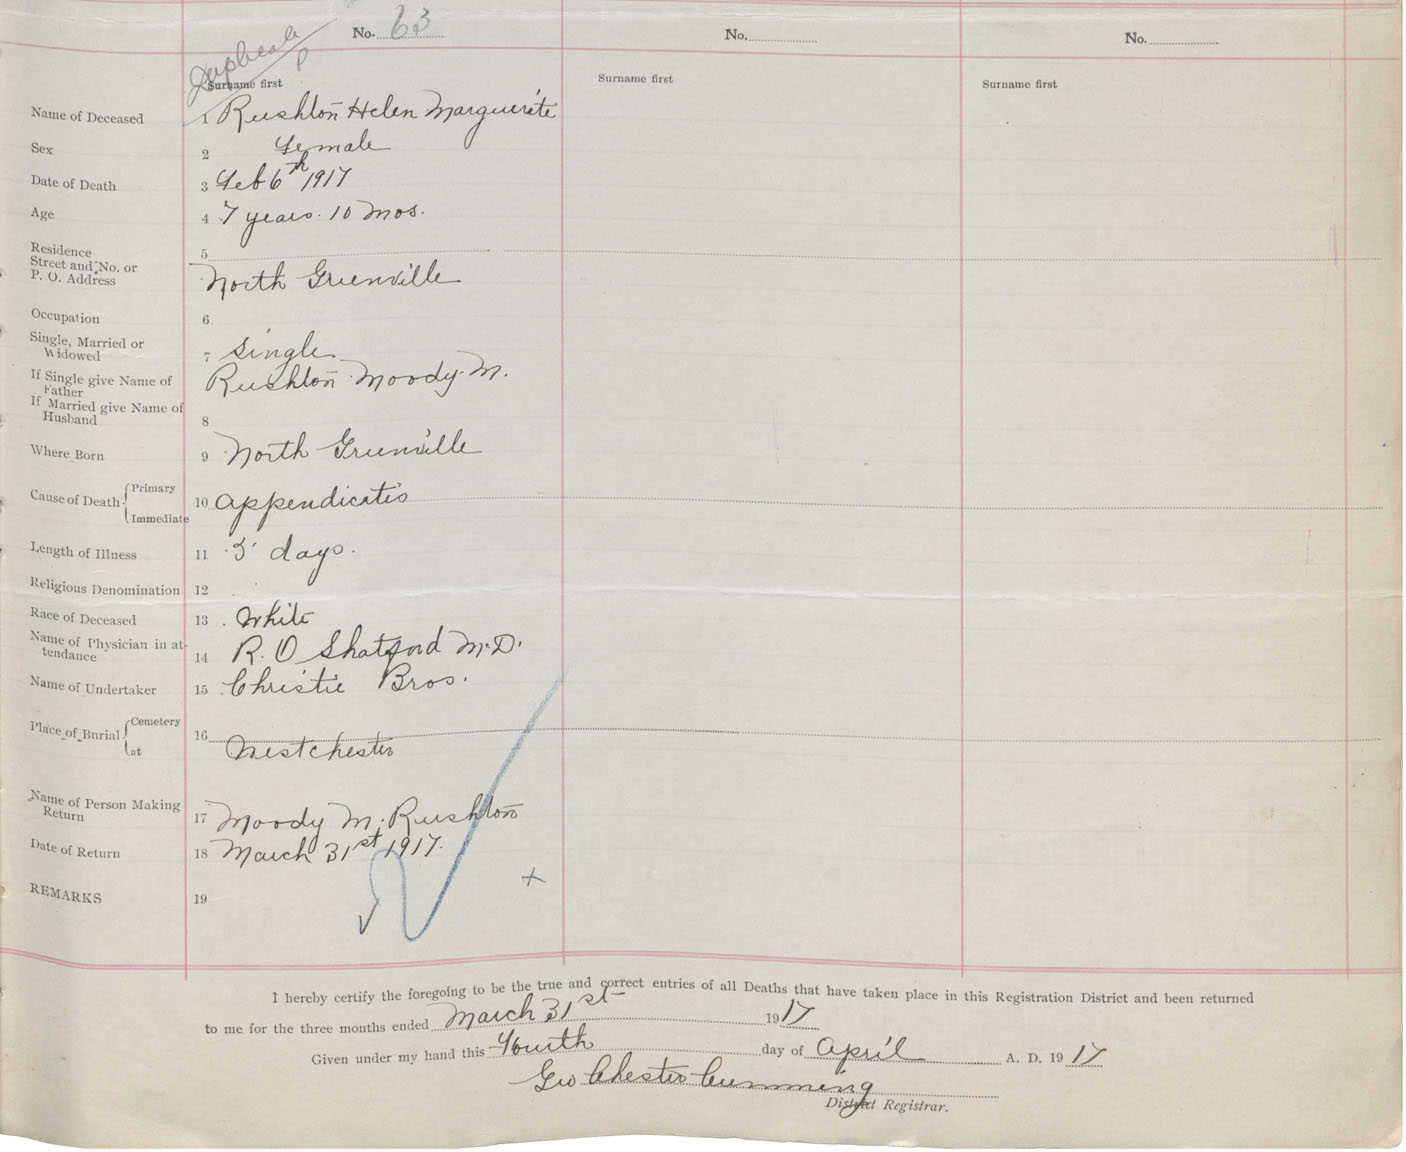 No. 63
No.
No.
Duplicate
Surname first
Surname first
Surname first
Name of Deceased 1 Rushton Helen Marguerite
Sex 2 Female
Date of Death 3 Feb 6th 1917
Age 4 7 years. 10 Mos.
Residence
Street and No. or
P. O. Address 5 North Greenville
Occupation 6
Single, Married or
Widowed 7 Single
If Single give Name of
Father Rushton Moody M.
If Married give Name of
Husband 8
Where Born 9 North Greenville
Cause of Death { Primary
Immediate 10 appendicatis
Length of Illness 11 3 days.
Religious Denomination 12
Race of Deceased 13 White
Name of Physician in at-
tendance 14 R. O Shatford M.D.
Name of Undertaker 15 Christie Bros.
Place of Burial { Cemetery
at 16 Westchester
Name of Person Making
Return 17 Moody M. Rushton
Date of Return 18 March 31st 1917.
REMARKS 19
I hereby certify the foregoing to be the true and correct entries of all Deaths that have taken place in this Registration District and been returned
to me for the three months ended March 31st 1917
Given under my hand this Fourth day of April A. D. 1917
Geo Chester Cumming
District Registrar.